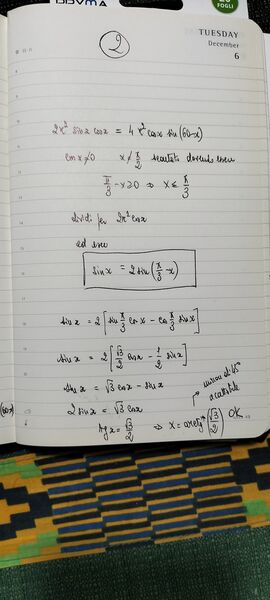 FOGLI
TUESDAY
December
6
2
2r² sinx cosx = 4r² cosx sin(60-x)
cosx≠0 x≠π/2 scartato dovendo essere
π/3 -x≥0 ⇒ x≤ π/3
divido per 2r² cosx
ed esce
sinx = 2sin(π/3 -x)
sinx = 2[sin π/3 cosx - cos π/3 sinx]
sinx = 2[√3/2 cosx - 1/2 sinx]
sinx = √3 cosx - sinx
2 sinx = √3 cosx
tg x = √3/2 ⇒ x = arctg(√3/2) OK
accettabile